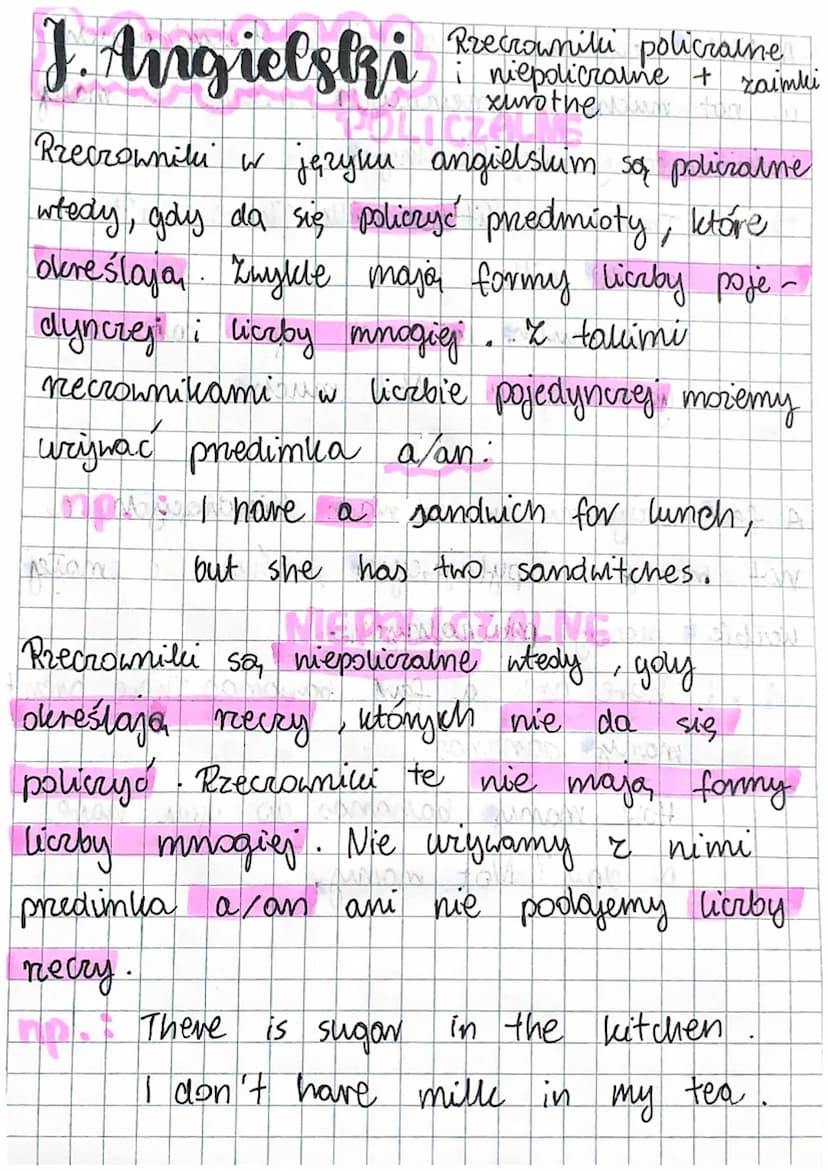 J. Angielski
Rzeczowniki policzalne
i niepoliczalne + zaimki
zwrotne
POLICZALNE
Rzeczowniki w języku angielskim są policzalne
wtedy, gdy da się policzyć przedmioty, które
określają. Zwykle mają formy liczby poje-
dynczej i liczby mnogiej. Z takimi
rzeczownikami w liczbie pojedynczej możemy
używać przedimka a/an.
np.: I have a sandwich for lunch,
but she has two sandwitches.
NIEPOLICZALNE
Rzeczowniki są niepoliczalne wtedy, gdy
określają rzeczy, których nie da się
policzyć. Rzeczowniki te nie mają formy
liczby mnogiej. Nie używamy z nimi
przedimka a/an ani nie podajemy liczby
rzeczy.
np.: There is sugar in the kitchen.
I don't have milk in my tea.